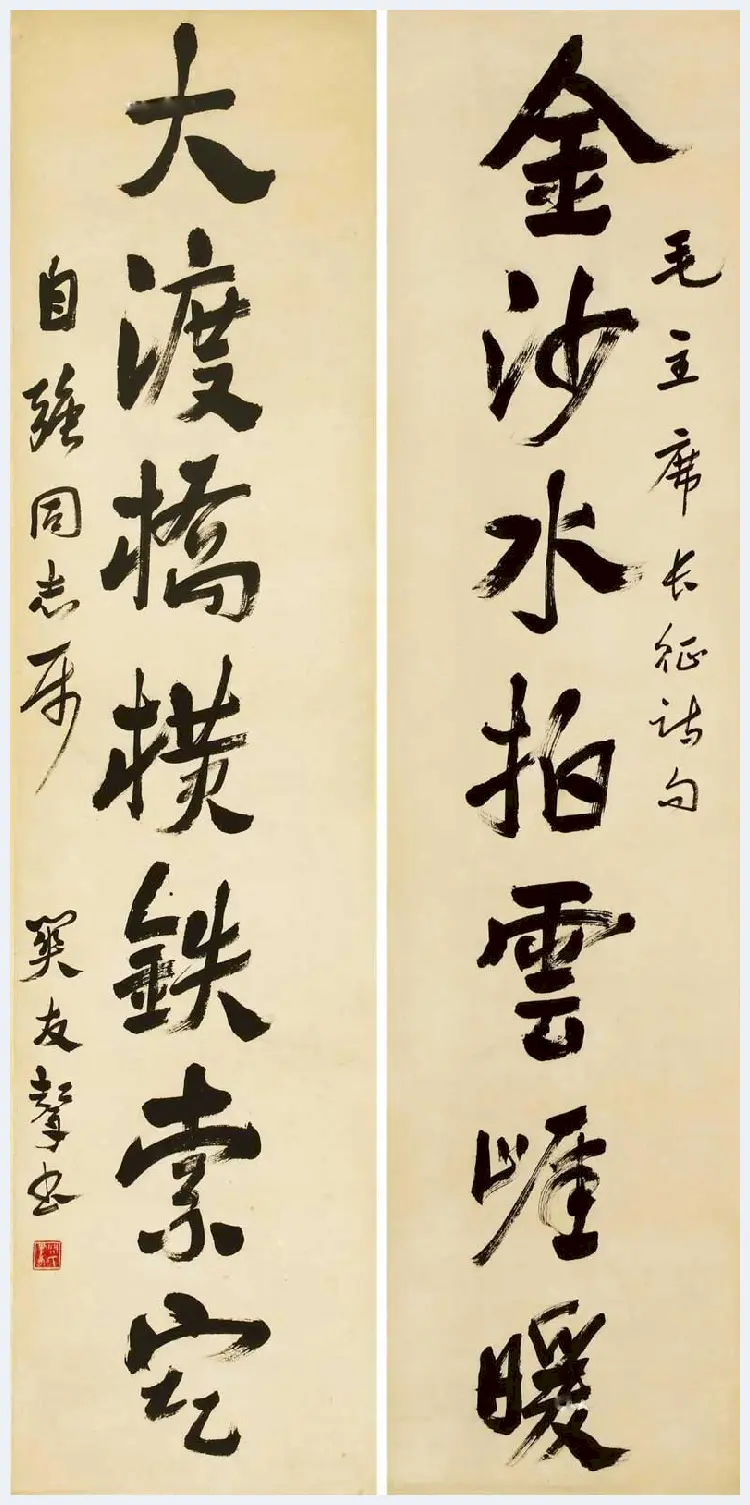 毛主席长征诗句
金沙水拍雲崕暖
大渡橋橫鉄索寒
自強同志属
関友聲书